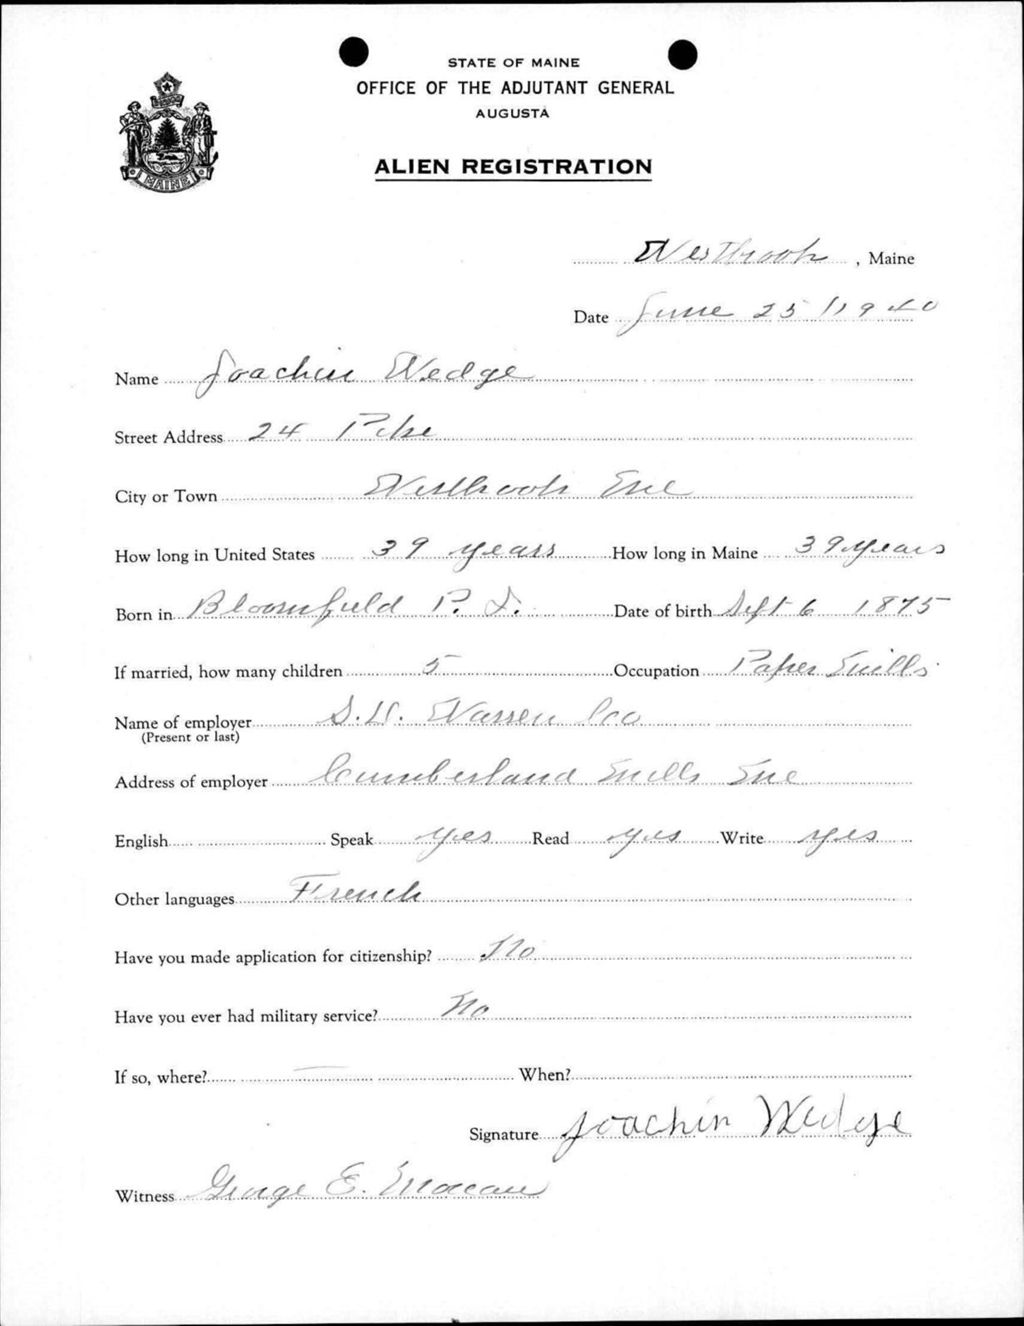 STATE OF MAINE
OFFICE OF THE ADJUTANT GENERAL
AUGUSTA
ALIEN REGISTRATION
MAINE
Westbrook, Maine
Date June 25 1940
Name Joachin Wedge
Street Address 24 Pike
City or Town Westbrook Me
How long in United States 39 years How long in Maine 39 years
Born in Bloomfield P. I. Date of birth Sept 6 1875
If married, how many children 5 Occupation Paper Mills
Name of employer S. D. Warren Co
(Present or last)
Address of employer Cumberland Mills Me
English Speak yes Read yes Write yes
Other languages French
Have you made application for citizenship? No
Have you ever had military service? No
If so, where? — When?
Signature Joachin Wedge
Witness George E.